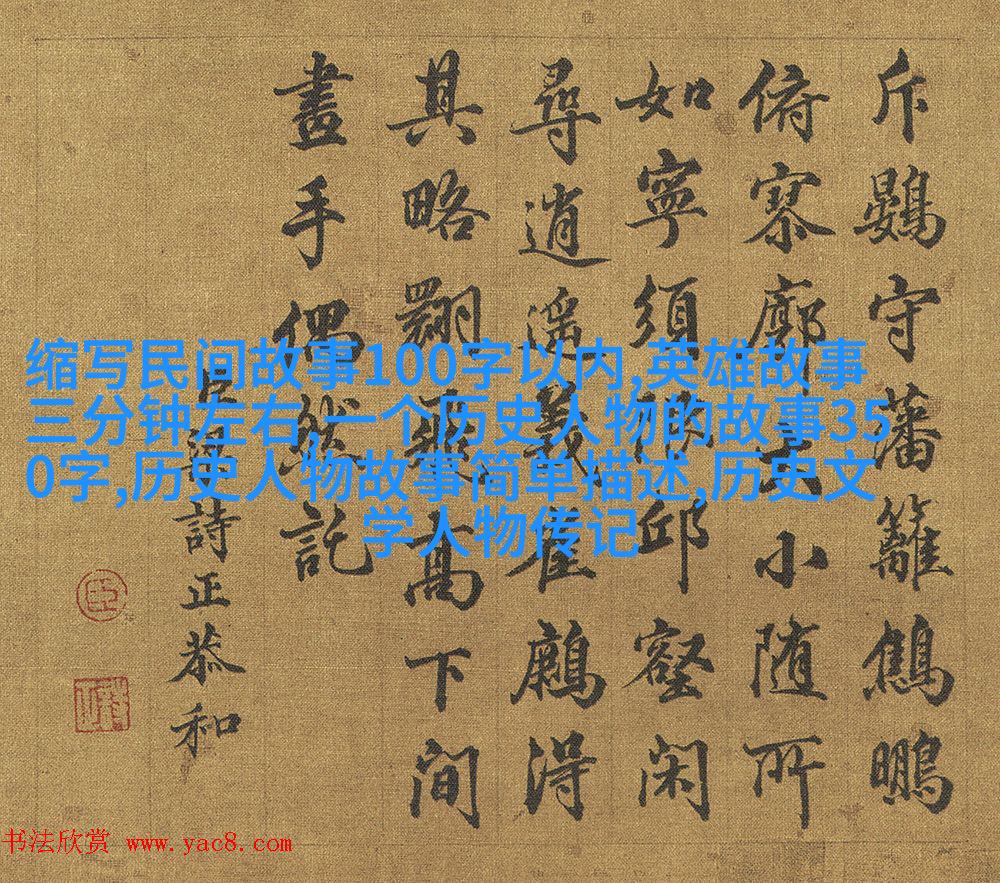 斥鷃守藩籬鷦鵬
俯寥廓大小随所
如寧須邱壑閑
尋逍遥義崔得
其略高下間
畫手偶然託
臣梁詩正恭和
臣
缩写民间故事100字以内,英雄故事
三分钟左右,一个历史人物的故事35
0字,历史人物故事简单描述,历史文
学人物传记
书法欣赏 www.yac8.com